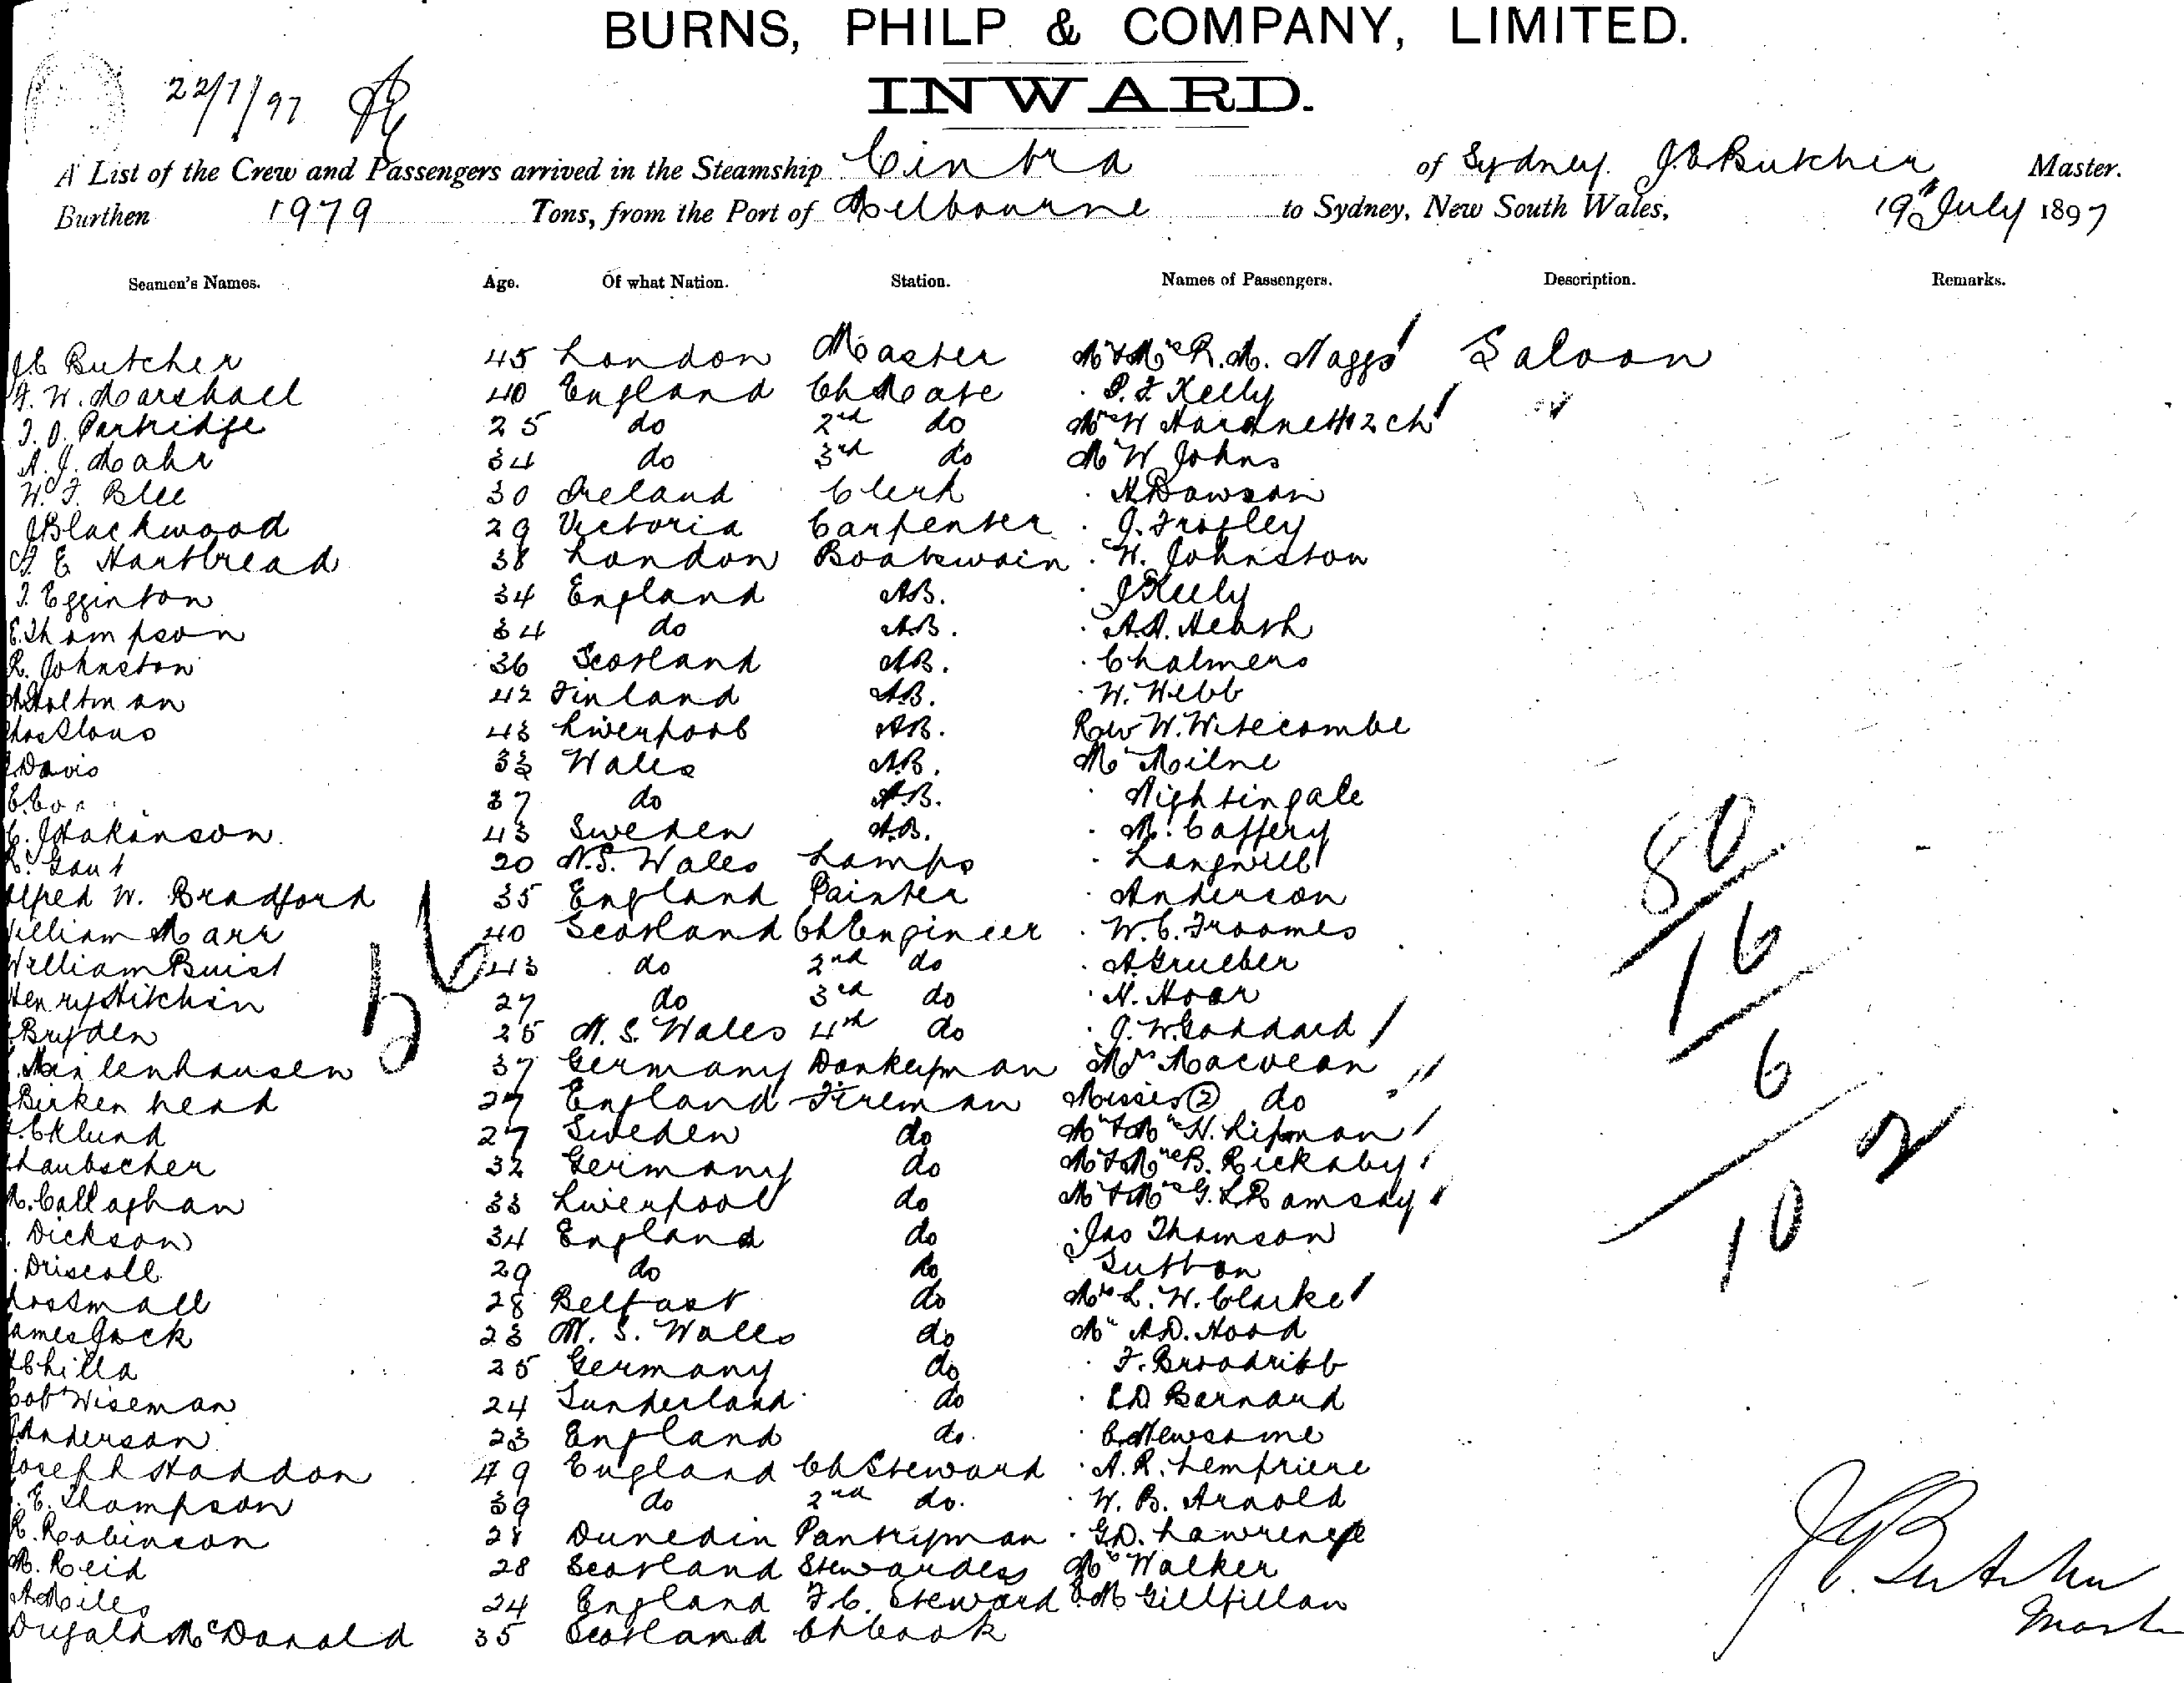 BURNS, PHILP & COMPANY, LIMITED.
INWARD.
22/7/97
A List of the Crew and Passengers arrived in the Steamship Cintra of Sydney. J.C Butcher Master.
Burthen 1979 Tons, from the Port of Melbourne to Sydney, New South Wales, 19th July 1897
Seamen's Names. Age. Of what Nation. Station. Names of Passengers. Description. Remarks.
J.C Butcher 45 London Master Mr & Mrs R.M. Naggs Saloon
W. Marshall 40 England Ch Mate P. F Kelly
Partridge 25 do 2nd do Mrs W 2 ch
A. J. 34 do 3rd do Mr W Johns
W. F. Blee 30 Ireland Clerk H Dawson
J Blackwood 29 Victoria Carpenter J.
E Hartbread 38 London Boatswain W. Johnston
Egginton 34 England AB. J
E. Thompson 34 do AB.
R. Johnston 36 Scotland AB. Chalmers
42 Finland AB. W. Webb
43 Liverpool AB. Rev W. Witecombe
Davis 33 Wales AB. Mr Milne
37 do A.B. Nightingale
C. 43 Sweden AB. McCaffery
20 N.S. Wales Lamps Langwill
Alfred W. Bradford 35 England Painter Anderson
William Marr 40 Scotland Ch Engineer W. C. Froomes
William Buist 43 do 2nd do A Grueber
Henry Hitchin 27 do 3rd do H. Hoar
Bryden 25 N. S. Wales 4th do J. W Goddard
56
37 Germany Donkeyman Mrs Macvean
Birkenhead 27 England Fireman Misses (2) do
Eklund 27 Sweden do Mr & Mrs H. Lipman
Laubscher 32 Germany do Mr & Mrs B. Rickaby
Callaghan 33 Liverpool do Mr & Mrs G. L Ramsay
Dickson 34 England do Jas Thomson
Driscoll 29 do do Sutton
Small 28 Belfast do Mrs L. W. Clarke
James Jack 23 N. S. Wales do Mr A.D. Hood
25 Germany do F. Broadribb
Wiseman 24 Sunderland do Barnard
Anderson 23 England do. C. Newsome
Joseph Haddon 49 England Ch Steward A. R. Lempriere
E. Thompson 39 do 2nd do. W. B. Arnold
R. Robinson 28 Dunedin Pantryman G.D. Lawrence
M. Reid 28 Scotland Stewardess Walker
Miles 24 England F.C. Steward Gillfillan
Dugald McDonald 35 Scotland Ch Cook
80
16
6
2
10
J.C. Butcher
Master